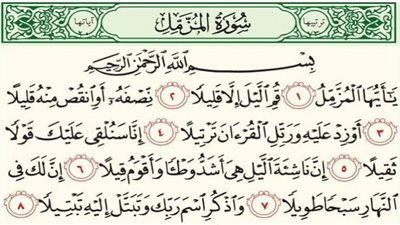 ترتيبها ٧٣ سُورَةُ المُزَّمِّل آياتها ٢٠
بِسْمِ ٱللَّهِ ٱلرَّحْمَٰنِ ٱلرَّحِيمِ
يَٰٓأَيُّهَا ٱلْمُزَّمِّلُ ١ قُمِ ٱلَّيْلَ إِلَّا قَلِيلًا ٢ نِّصْفَهُۥٓ أَوِ ٱنقُصْ مِنْهُ قَلِيلًا
٣ أَوْ زِدْ عَلَيْهِ وَرَتِّلِ ٱلْقُرْءَانَ تَرْتِيلًا ٤ إِنَّا سَنُلْقِى عَلَيْكَ قَوْلًا
ثَقِيلًا ٥ إِنَّ نَاشِئَةَ ٱلَّيْلِ هِىَ أَشَدُّ وَطْـًٔا وَأَقْوَمُ قِيلًا ٦ إِنَّ لَكَ فِى
ٱلنَّهَارِ سَبْحًا طَوِيلًا ٧ وَٱذْكُرِ ٱسْمَ رَبِّكَ وَتَبَتَّلْ إِلَيْهِ تَبْتِيلًا ٨